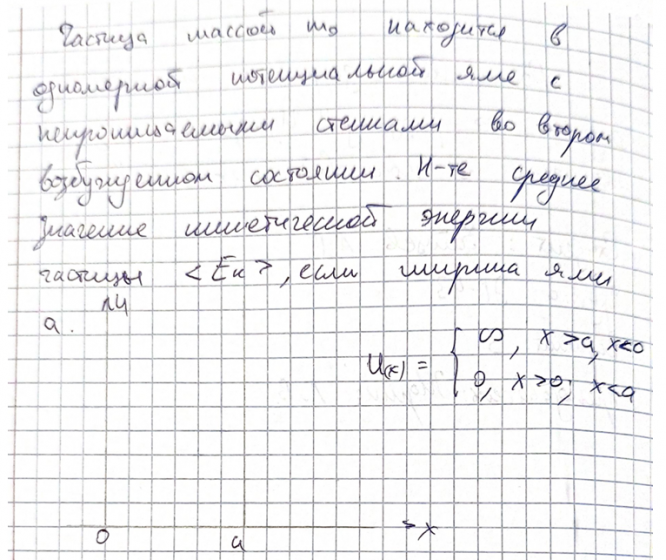 Частица массой m₀ находится в
одномерной потенциальной яме с
непроницаемыми стенками во втором
возбужденном состоянии. Н-те среднее
значение кинетической энергии
частицы <Eк>, если ширина ямы
a.
U(x) = { ∞, x>a, x<0
0, x>0; x<a
0 a x